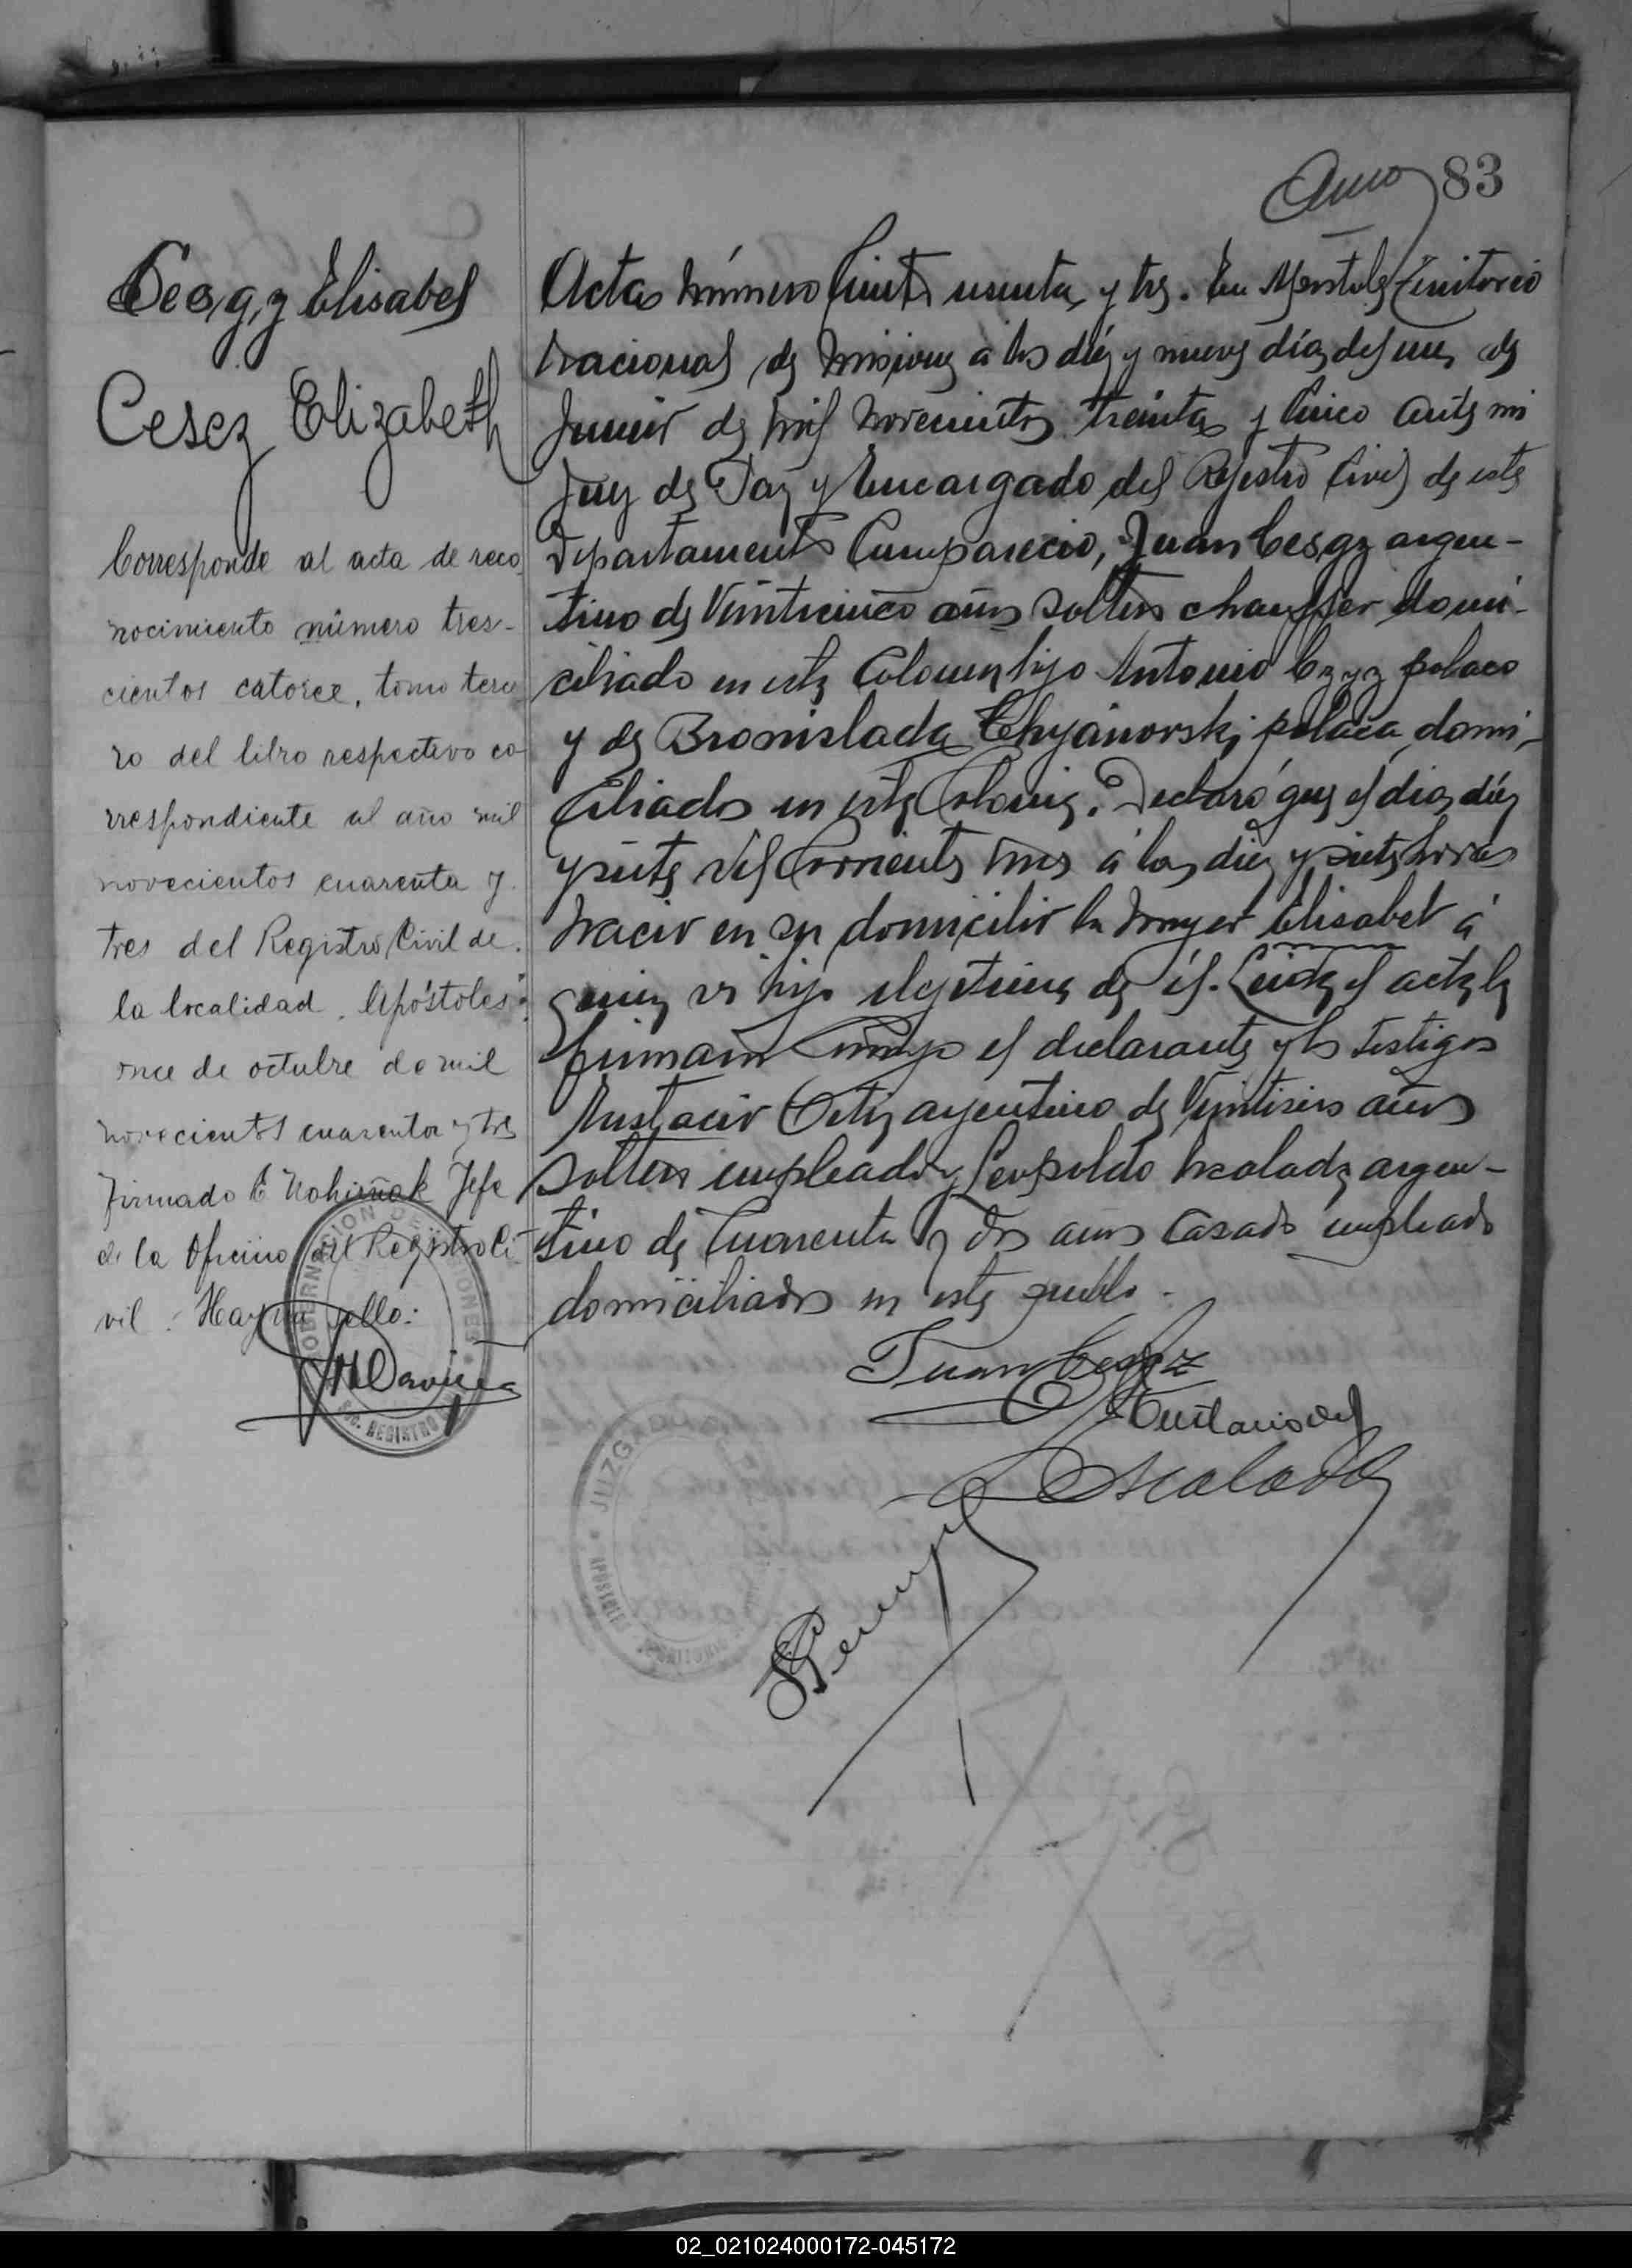 83
Elisabet
Cesez Elizabeth
Corresponde al acta de reco-
nocimiento número tres-
cientos catorce, tomo terce
ro del libro respectivo co-
rrespondiente al año mil
novecientos cuarenta y
tres del Registro Civil de
la localidad. Apóstoles
once de octubre de mil
novecientos cuarenta y tres
Firmado Jefe
de la Oficina del Registro Ci-
vil. Hay un sello:
Acta número Ciento y tres. En Apostoles Territorio
nacional de Misiones a los diez y nueve días del mes de
Junio de mil novecientos treinta y cinco ante mi
Juez de Paz y Encargado del Registro Civil de este
Departamento Compareció, Juan argen-
tino de Veinticinco años soltero chauffer domi-
ciliado en esta Colonia hijo Antonio polaco
y de Bronislada polaca domi-
ciliados en esta Colonia. Declaró que el día diez
y siete del Corriente mes á las diez y siete horas
nació en su domicilio la mujer Elisabet á
quien es hija ilegitima de él. Leida el acta la
firmaron Conmigo el declarante y los testigos
Eustacio Ortiz argentino de Veintiseis años
soltero empleado y Leopoldo Escalada argen-
tino de Cuarenta y dos años casado empleado
domiciliados en este pueblo.
Juan
Escalada
GOBERNACION DE MISIONES
REGISTRO
JUZGADO
APOSTOLES
02_021024000172-045172